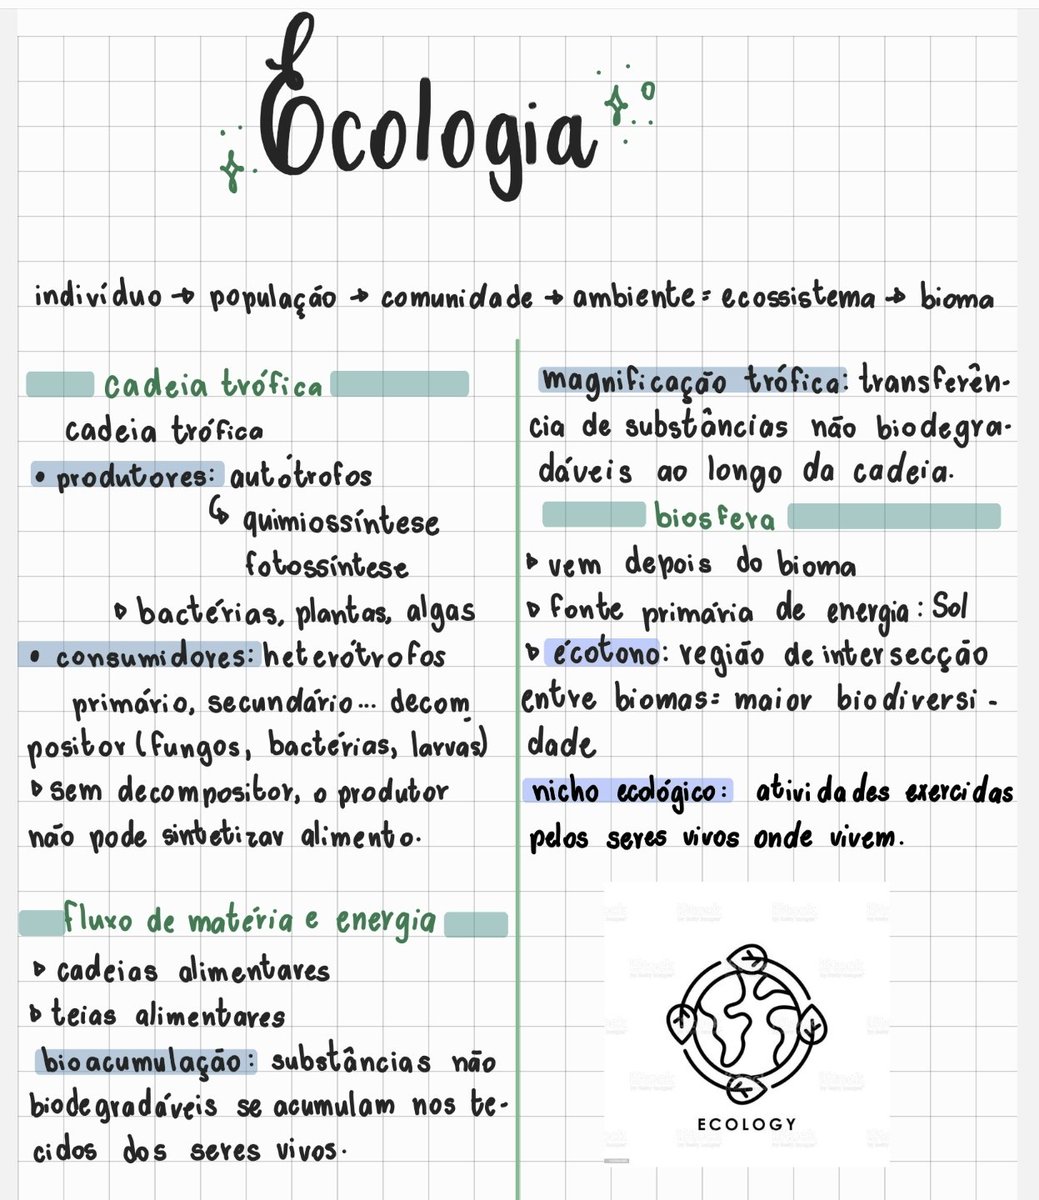 Ecologia
indivíduo → população → comunidade → ambiente = ecossistema → bioma
cadeia trófica
cadeia trófica
• produtores: autótrofos
↳ quimiossíntese
fotossíntese
▹ bactérias, plantas, algas
• consumidores: heterótrofos
primário, secundário... decom
positor (fungos, bactérias, larvas)
▹ sem decompositor, o produtor
não pode sintetizar alimento.
fluxo de matéria e energia
▹ cadeias alimentares
▹ teias alimentares
bioacumulação: substâncias não
biodegradáveis se acumulam nos te-
cidos dos seres vivos.
magnificação trófica: transferên-
cia de substâncias não biodegra-
dáveis ao longo da cadeia.
biosfera
▹ vem depois do bioma
▹ fonte primária de energia: Sol
▹ écotono: região de intersecção
entre biomas = maior biodiversi-
dade
nicho ecológico: atividades exercidas
pelos seres vivos onde vivem.
ECOLOGY